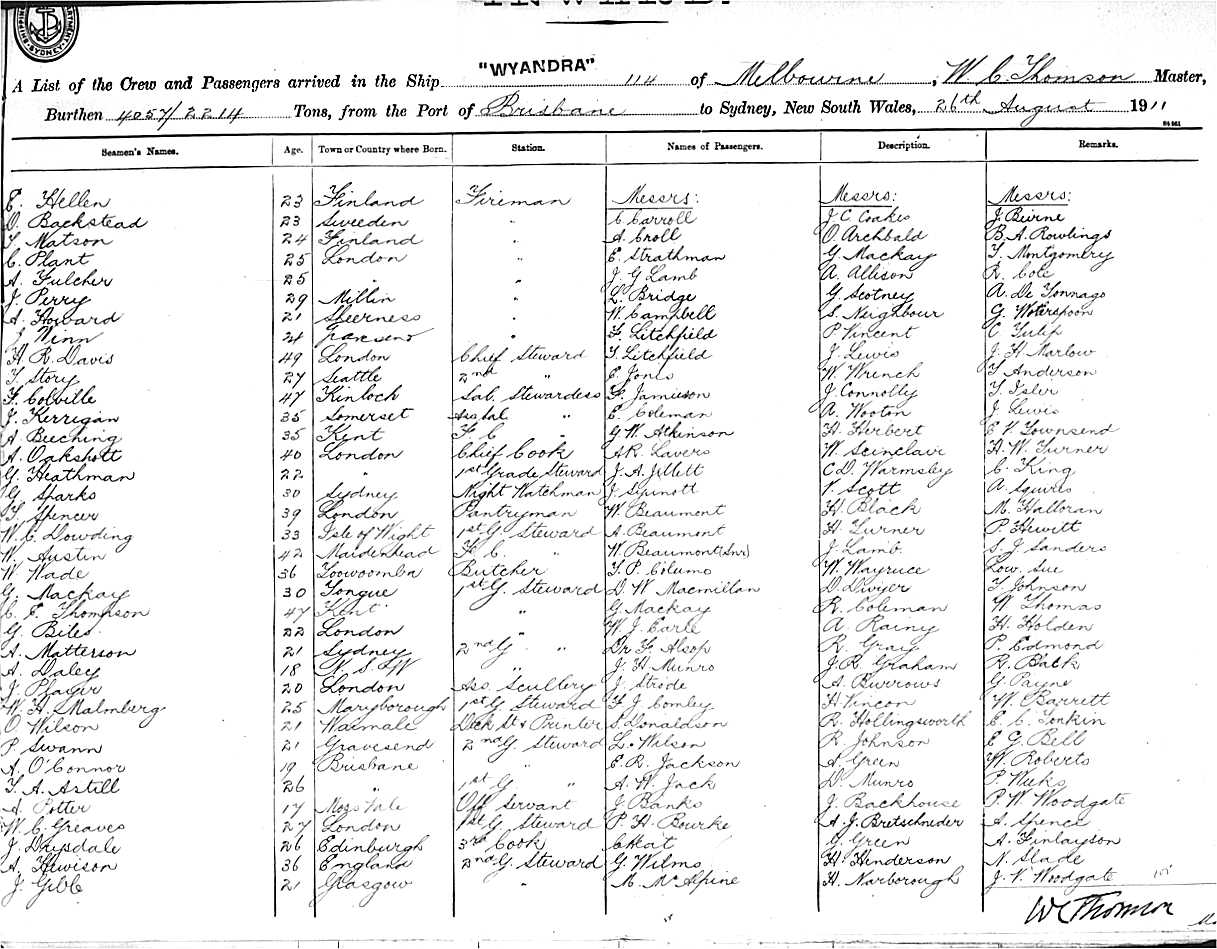 INWARD.
SHIPPING DEPARTMENT SYDNEY
A List of the Crew and Passengers arrived in the Ship "WYANDRA" 114 of Melbourne, W C Thomson Master,
Burthen 4057/2214 Tons, from the Port of Brisbane to Sydney, New South Wales, 26th August 1911
Seamen's Names. Age. Town or Country where Born. Station. Names of Passengers. Description. Remarks.
E. Hellen 23 Finland Fireman Messrs: Messrs: Messrs:
O. Backstead 23 Sweeden " C Carroll J C Coakes J. Beirne
T. Matson 24 Finland " A. Croll O. Archbald B. A. Rowlings
C. Plant 25 London " E. Strathman G. Mackay T. Montgomery
A. Fulcher 25 " " J G Lamb A. Allison R. Cole
J. Perry 29 Millin " L. Bridge G. Scotney A. De Tonnago
A. Howard 21 Sheerness " W. Campbell S. Neighbour G. Woterspoon
J Winn 24 " F. Litchfield P Vincent C Tulip
H R. Davis 49 London Chief Steward T. Litchfield J. Lewis J. H Marlow
T Story 27 Seattle 2nd " E. Jones W. Wrench T Anderson
F. Colville 47 Kinloch Sal. Stewardess F. Jamieson J. Connolly T Isler
J. Kerrigan 35 Somerset Ass Sal " E Coleman A. Wooton J. Lewis
A Beeching 35 Kent F C " G W. Atkinson H. Herbert E V. Townsend
A. Oakshott 40 London Chief Cook A R. Lavers W. Scinclair H. W. Turner
G. Heathman 22 " 1st Grade Steward J. A. Jillett C D. Warmsley C. King
G. Sparks 30 Sydney Night Watchman J. Sinnott V. Scott A. Squires
T. Spencer 39 London Pantryman W. Beaumont H. Black M. Halloran
W. C. Dowding 33 Isle of Wight 1st G. Steward A. Beaumont H. Turner P. Hewitt
W. Austin 42 Maidenhead F. C. " W. Beaumont (Snr) J. Lamb S. J. Sanders
W Wade 36 Toowoomba Butcher T. P. Columo W. Wayruce Low. Sue
G. Mackay 30 Tongue 1st G. Steward D. W Macmillan D. Dwyer T Johnson
C. F. Thompson 47 Kent " G. Mackay R. Coleman W Thomas
G. Biles 22 London " W. J. Earle A. Rainy H. Holden
A. Matterson 21 Sydney 2nd G " Dr F. Alsop R. Gray P. Edmond
A. Daley 18 N. S. W " J. H Munro J. R. Graham R. Back
J. Plager 20 London Ass. Scullery J Stride A. Burrows G. Payne
W. H. Malmberg 25 Maryborough 1st G Steward F J. Comley H Vincon W. Barrett
O. Wilson 21 Walmale Deck St & Printer S. Donaldson R. Hollingsworth E. C. Tonkin
P. Swann 21 Gravesend 2nd G. Steward L. Wilson R Johnson E G. Bell
A. O'Connor 19 Brisbane " E. R. Jackson A Green W. Roberts
T. A. Astill 26 " 1st G " A. W Jack D. Munro P. Weeks
A. Potter 17 Moss Vale Off Servant J Banks J. Backhouse P. W Woodgate
W. C. Greaves 27 London 1st G. Steward P. H Bourke A. J. Bretschneder A. Spence
J. Drysdale 26 Edinburgh 3rd Cook G. Green A. Finlayson
A. Hewison 36 England 2nd G Steward G. Wilms H. Henderson N. Slade
J. Gibb 21 Glasgow " M. McAlpine H. Narborough J. V. Woodgate
W C Thomson